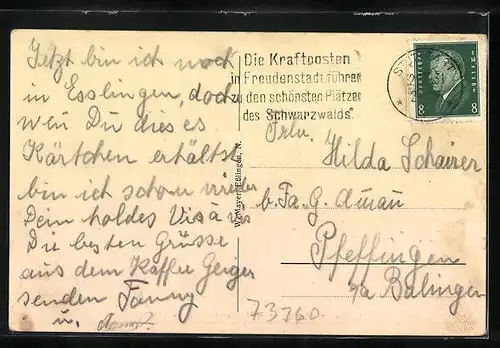 Jetzt bin ich noch
in Esslingen, doch
wen Du dies es
Kärtchen erhältst
bin ich schon
Dein holdes
Die besten Grüsse
aus dem Kaffee Geiger
senden Fanny
u.
Die Kraftposten
in Freudenstadt führen
zu den schönsten Plätzen
des Schwarzwalds
DEUTSCHES REICH
8 8
Frln.
Hilda Schairer
b. Fa. G.
Pfeffingen
Balingen
73360